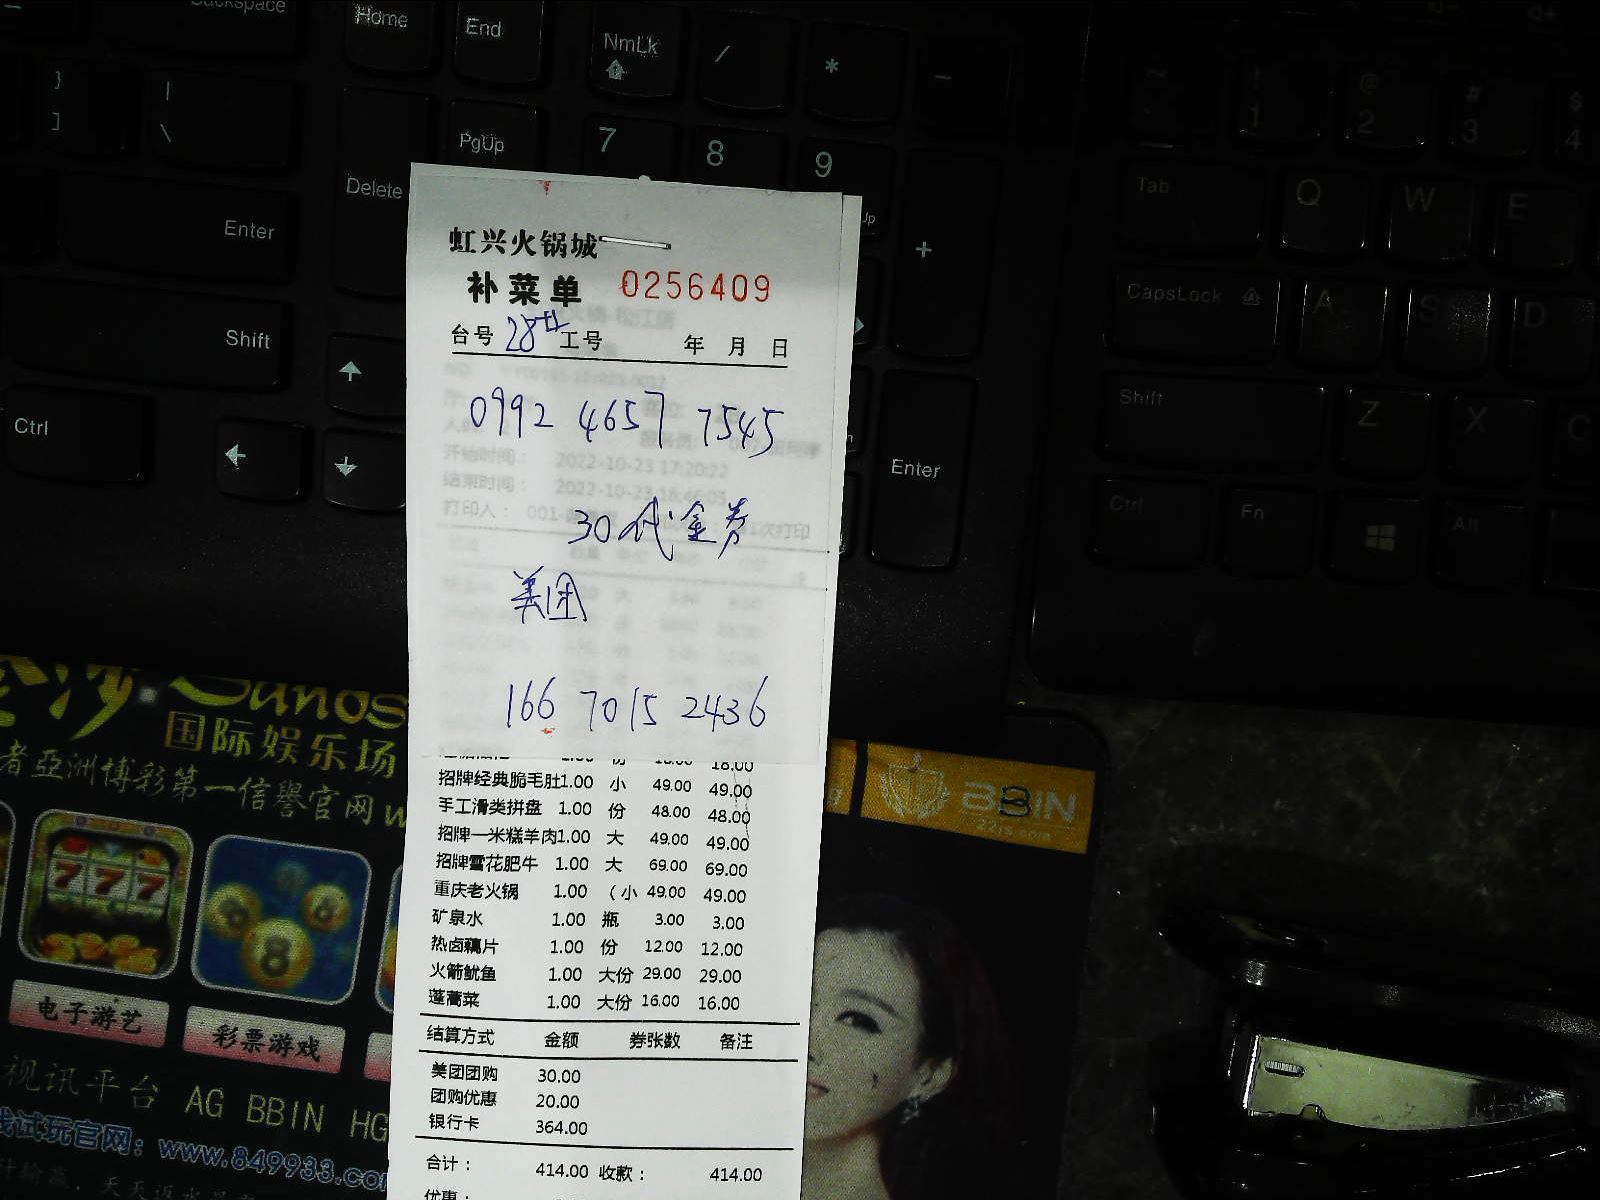 Backspace
Home
End
NmLk
/
*
-
}
]
|
\
Delete
PgUp
7
8
9
Enter
+
Shift
Ctrl
Enter
~
!
1
@
2
#
3
$
4
Tab
Q
W
E
CapsLock
A
S
D
Shift
Z
X
C
Ctrl
Fn
Alt
虹兴火锅城
补菜单 0256409
台号 28廿 工号 年 月 日
0992 4657 7545
开始时间： 2022-10-23 17:20:22
结束时间：
打印人： 001-
30代金券
美团
166 7015 2436
18.00 18.00
招牌经典脆毛肚1.00 小 49.00 49.00
手工滑类拼盘 1.00 份 48.00 48.00
招牌一米糕羊肉1.00 大 49.00 49.00
招牌雪花肥牛 1.00 大 69.00 69.00
重庆老火锅 1.00 （小 49.00 49.00
矿泉水 1.00 瓶 3.00 3.00
热卤藕片 1.00 份 12.00 12.00
火箭鱿鱼 1.00 大份 29.00 29.00
蓬蒿菜 1.00 大份 16.00 16.00
结算方式 金额 券张数 备注
美团团购 30.00
团购优惠 20.00
银行卡 364.00
合计： 414.00 收款： 414.00
优惠：
金沙
国际娱乐场
者亞洲博彩第一信譽官网 w
777
8
6
8
电子游艺
彩票游戏
视讯平台 AG BBIN HG
线试玩官网：www.849933.com
BBIN
22js.com